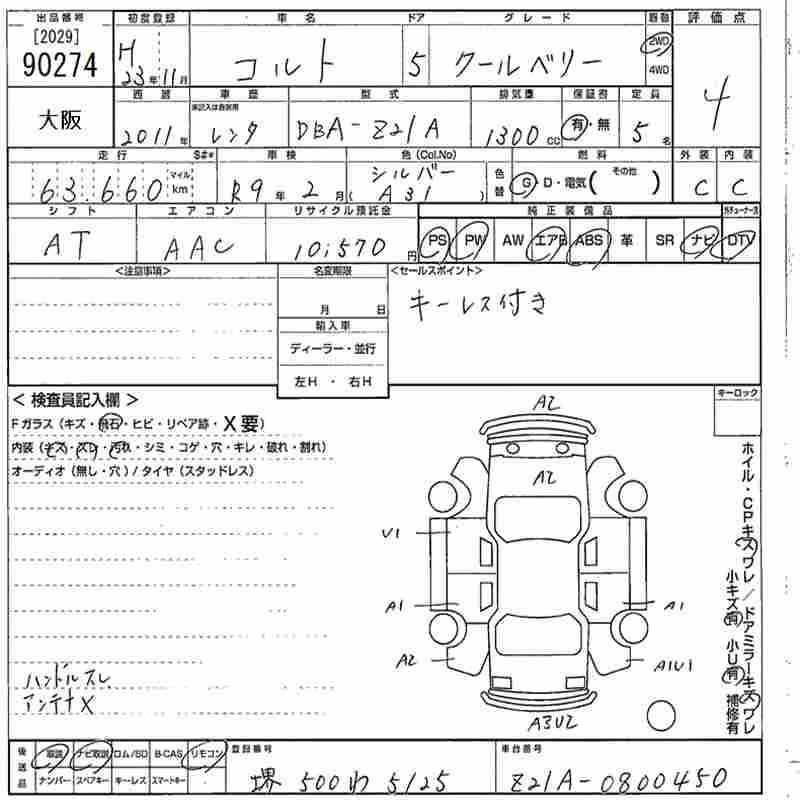 出品番号 初度登録 車名 ドア グレード 駆動 評価点
[2029] 90274 H 23年11月 コルト 5 クールベリー 2WD 4WD 4
大阪 西暦 車歴 型式 排気量 保証書 定員
未記入は自家用
2011年 レンタ DBA-Z21A 1300cc 有・無 5名
走行 S#♯ 車検 色(Col.No) 色替 燃料 外装 内装
63,660 マイル km R9年2月 シルバー (A31) G・D・電気( その他 ) C C
シフト エアコン リサイクル預託金 純正装備品 外チューナース
AT AAC 10,570円 PS PW AW エアB ABS 革 SR ナビ DTV
<注意事項> 名変期限 <セールスポイント>
月 日 キーレス付き
輸入車
ディーラー・並行
左H ・ 右H
< 検査員記入欄 > キーロック
Fガラス(キズ・飛石・ヒビ・リペア跡・X要)
内装(キズ・スレ・汚れ・シミ・コゲ・穴・キレ・破れ・割れ)
オーディオ(無し・穴)/タイヤ(スタッドレス)
A2
A2
U1
A1 A1
A2 A1U1
A3U2
ホイル・CPキズワレ/ドアミラーキズワレ
小キズ有 小U有 補修有
ハンドルスレ
アンテナX
後送品 取説 ナビ取説 ロム/SD B-CAS リモコン 登録番号 車台番号
ナンバー スペアキー キーレス スマートキー 堺 500わ 5125 Z21A-0800450